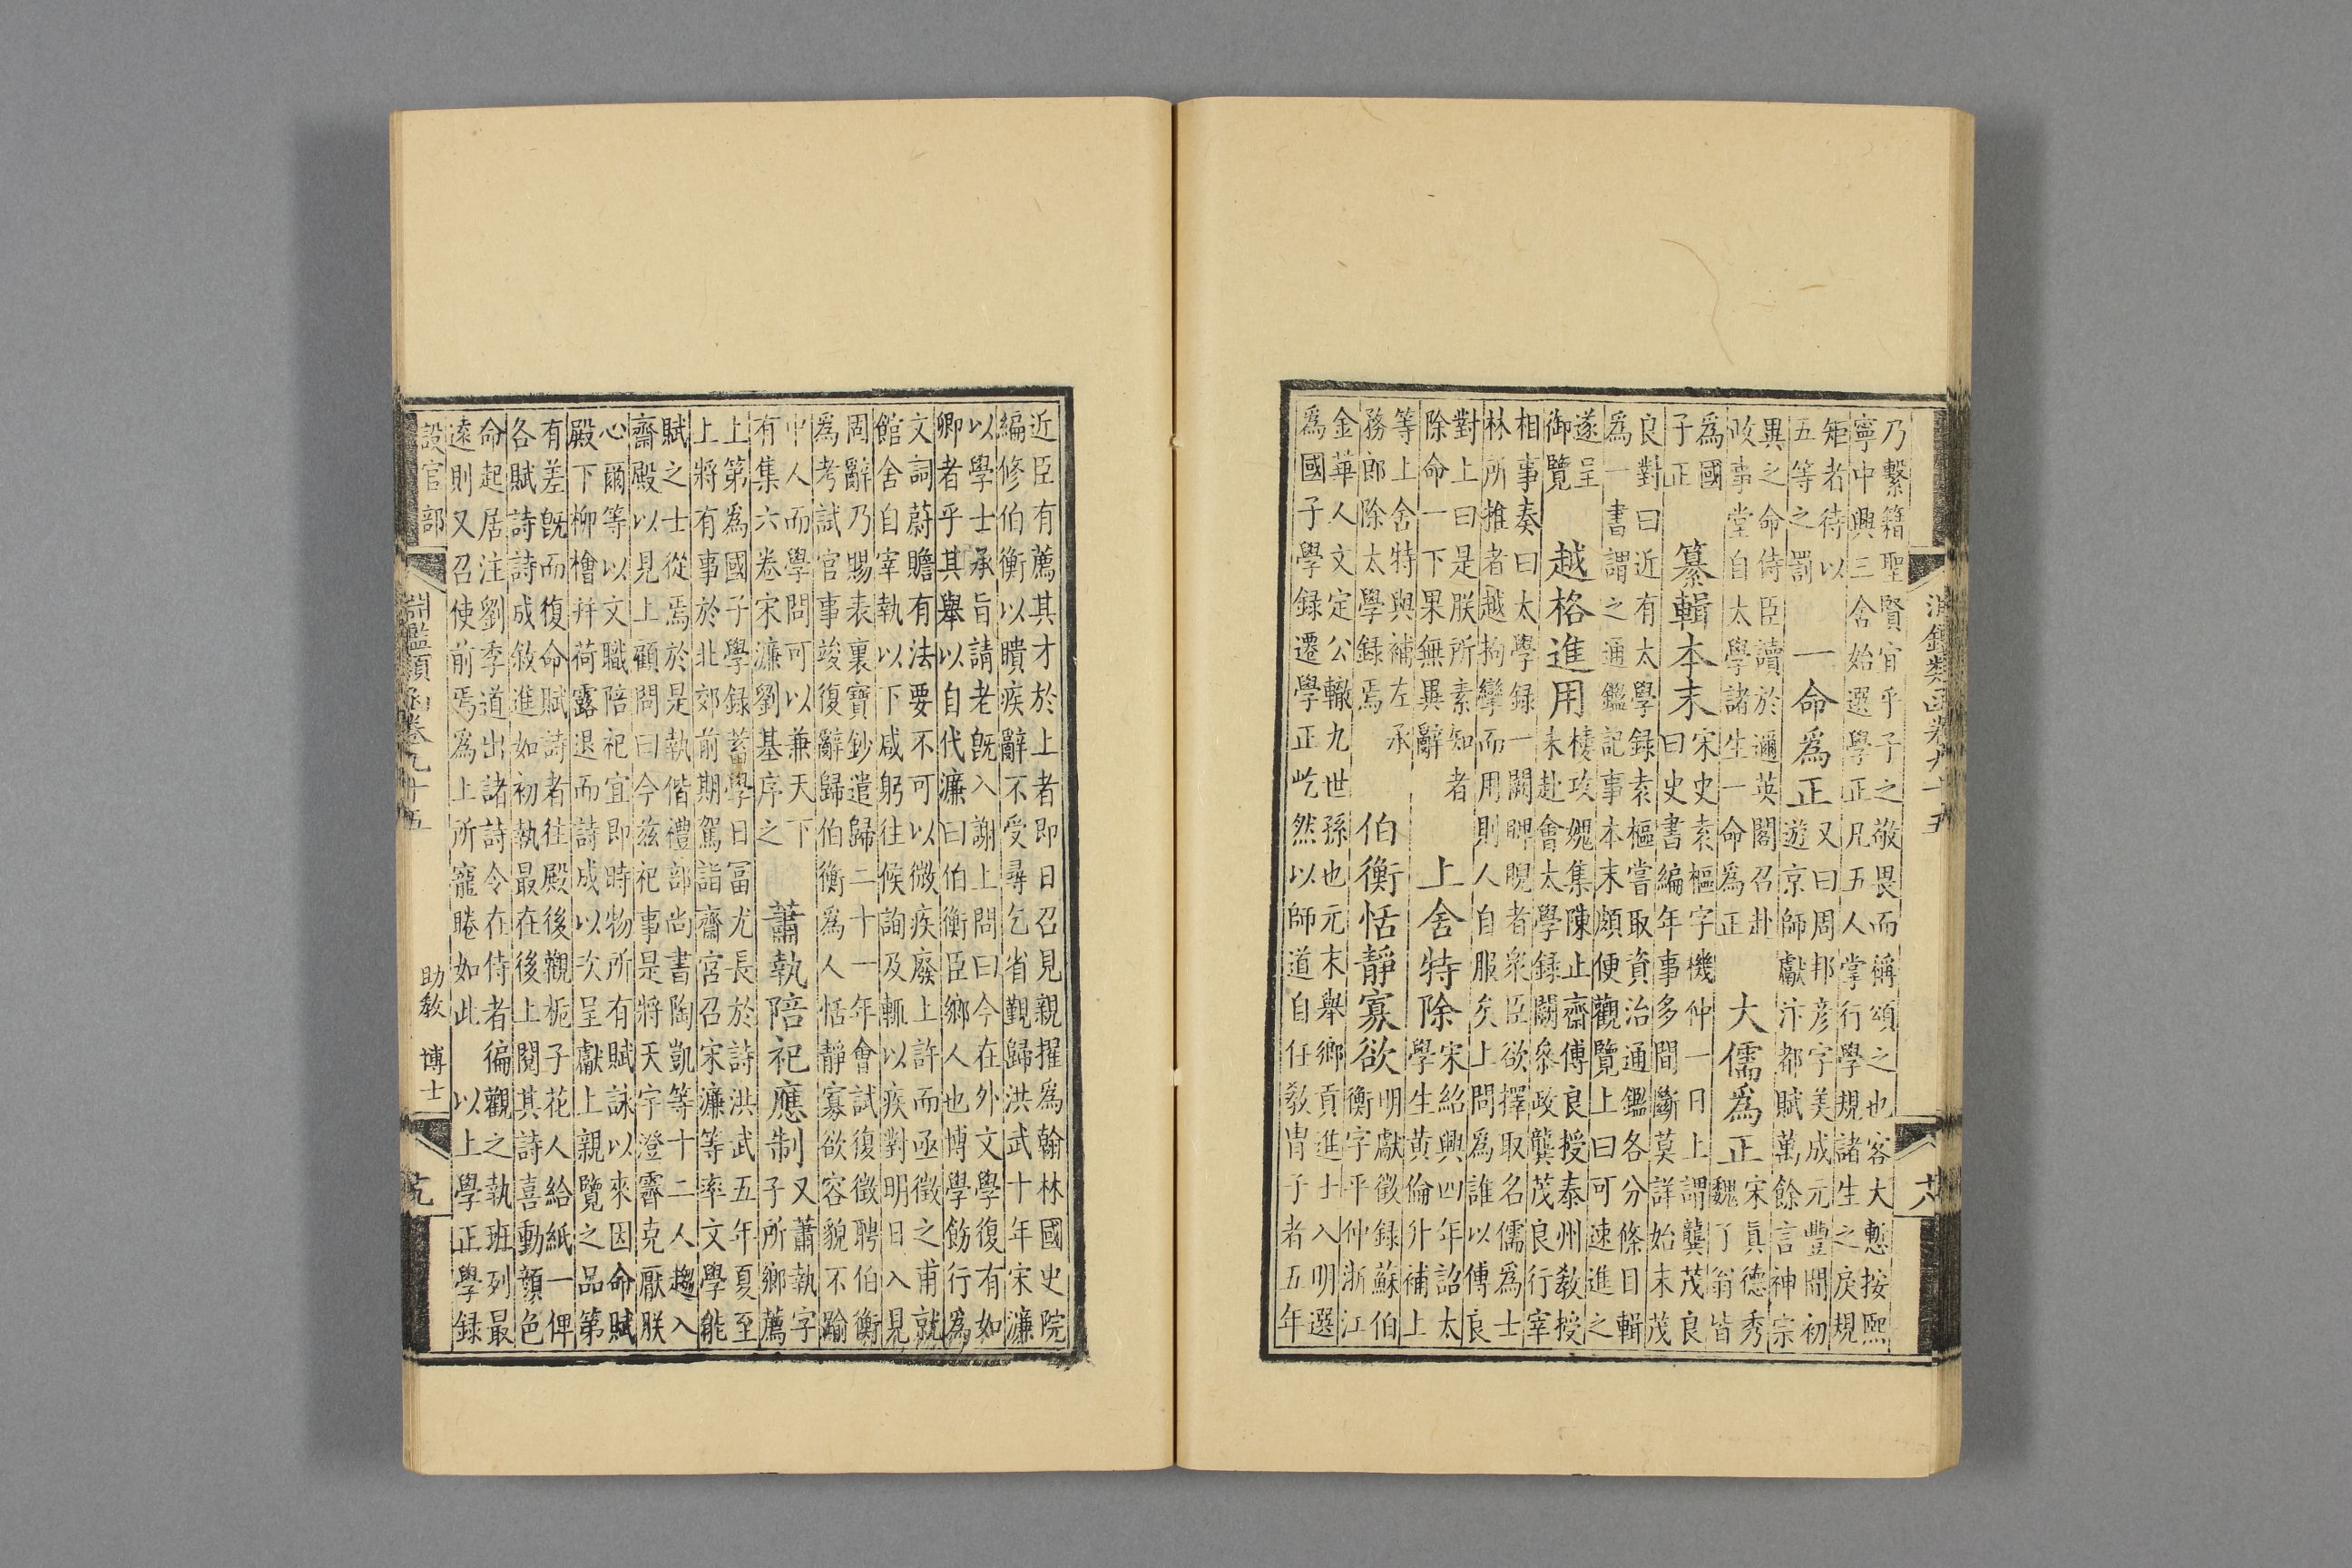 乃繫籍聖賢宜乎子之敬畏而稱頌之也客大慙按熙
寧中興三舍始選學正凡五人掌行學規諸生之戾規
矩者待以
五等之罰
一命爲正
又曰周邦彦字美成元豐間初
遊京師獻汴都賦萬餘言神宗
異之命侍臣讀於邇英閣召赴
政事堂自太學諸生一命爲正
大儒爲正
宋眞德秀
魏了翁皆
爲國
子正
纂輯本末
宋史袁樞字機仲一日上謂龔茂良
曰史書編年事多間斷莫詳始末茂
良對曰近有太學録袁樞嘗取資治通鑑各分條目輯
爲一書謂之通鑑記事本末頗便觀覽上曰可速進之
遂呈
御覽
越格進用
棲攻媿集陳止齋傅良授泰州教授
未赴會太學録闕叅政龔茂良行宰
相事奏曰太學録一闕睥睨者衆臣欲擇取名儒爲士
林所推者越拘攣而用則人自服矣上問爲誰以傅良
對上曰是朕所素知者
除命一下果無異辭
上舍特除
宋紹興四年詔太
學生黄倫升補上
等上舍特與補左承
務郎除太學録焉
伯衡恬靜寡欲
明獻徵録蘇伯
衡字平仲浙江
金華人文定公轍九世孫也元末舉鄉貢進士入明選
爲國子學録遷學正屹然以師道自任教胄子者五年
淵鑑類函卷九十五
十八
近臣有薦其才於上者即日召見親擢爲翰林國史院
編修伯衡以瞶疾辭不受尋乞省覲歸洪武十年宋濂
以學士承旨請老旣入謝上問曰今在外文學復有如
卿者乎其舉以自代濂曰伯衡臣鄉人也博學飭行爲
文詞蔚贍有法要不可以微疾廢上許而亟徵之甫就
館舍自宰執以下咸躬往候詢及輒以疾對明日入見
固辭乃賜表裏寶鈔遣歸二十一年會試復徵聘伯衡
爲考試官事竣復辭歸伯衡爲人恬靜寡欲容貌不踰
中人而學問可以兼天下
有集六卷宋濂劉基序之
蕭執陪祀應制
又蕭執字
子所鄉薦
上第爲國子學録蓄學日富尤長於詩洪武五年夏至
上將有事於北郊前期駕詣齋宮召宋濂等率文學能
賦之士從焉於是執偕禮部尚書陶凱等十二人趨入
齋殿以見上顧問曰今兹祀事是將天宇澄霽克厭朕
心爾等以文職陪祀宜即時物所有賦詠以來因命賦
殿下柳檜幷荷露退而詩成以次呈獻上親覽之品第
有差旣而復命賦詩者往殿後觀梔子花人給紙一俾
各賦詩詩成敘進如初執最在後上閱其詩喜動顔色
命起居注劉季道出諸詩令在侍者徧觀之執班列最
遠則又召使前焉爲上所寵睠如此
以上學正學録
設官部
淵鑑類函卷九十五
助教
博士